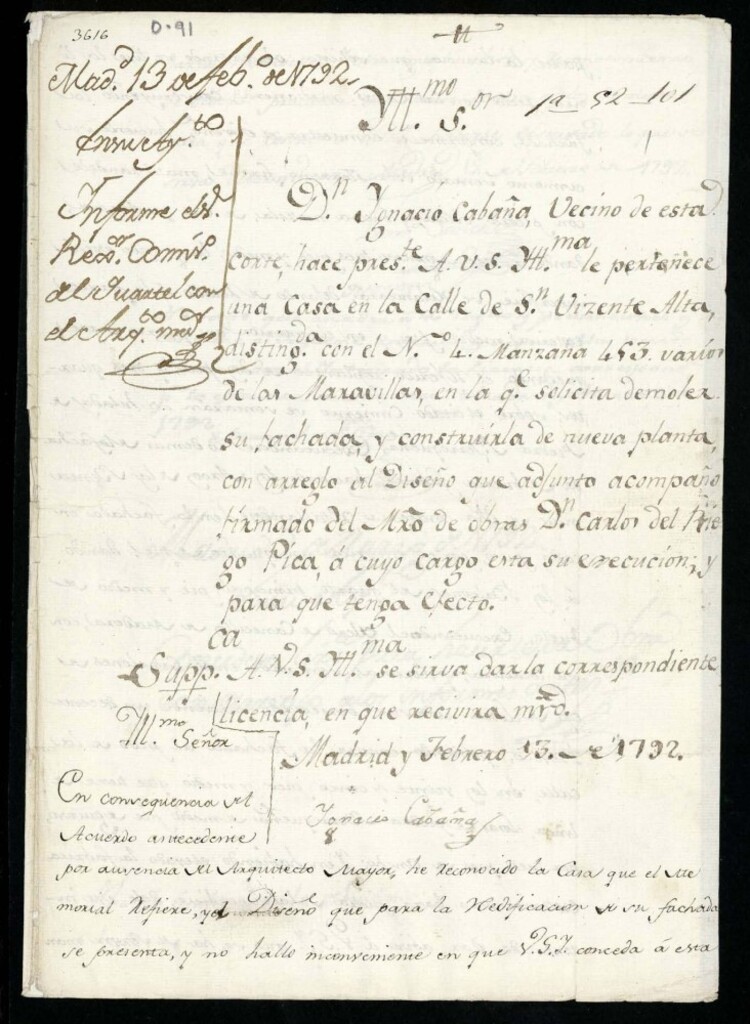 3616
0-91
Mad.d 13 de feb.o de 1792
En su Ay.to
Informe el S.r
Rex.or Comis.o
del Quartel con
el Arq.to m.or
Ill.mo S.or
1a-52-101
D.n Ignacio Cabaña, Vecino de esta
corte, hace pres.te A. V. S. Ill.ma le perteñece
una Casa en la Calle de S.n Vizente Alta,
disting.da con el N.o 4. Manzana 453. varrio
de las Maravillas, en la q.e solicita demoler
su fachada, y construirla de nueva planta,
con arreglo al Diseño que adjunto acompaño
firmado del Mro de obras D.n Carlos del Rie
go Pica, á cuyo cargo esta su execución; y
para que tenga Efecto.
Supp.ca A. V. S. Ill.ma se sirva darla correspondiente
licencia, en que recivira mrd.
Madrid y Febrero 13. de 1792.
Ignacio Cabaña
Ill.mo Señor
En conseqüencia del
Acuerdo antecedente
por ausencia del Arquitecto Mayor, he reconocido la Casa que el Me
morial Refiere, y el Diseño que para la Redificacion de su fachada
se presenta, y no hallo inconveniente en que V.S.I. conceda á esta